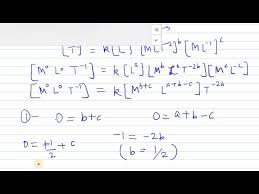 [T] = k[L]ᵃ [ML⁻³]ᵇ [ML⁻¹]ᶜ
[M⁰ L⁰ T⁻¹] = k[Lᵃ][Mᵇ Lᵇ T⁻²ᵇ][Mᶜ L⁻ᶜ]
[M⁰ L⁰ T⁻¹] = k[Mᵇ⁺ᶜ Lᵃ⁺ᵇ⁻ᶜ T⁻²ᵇ]
①- 0 = b+c 0 = a+b-c
0 = +1/2 + c -1 = -2b
(b = 1/2)